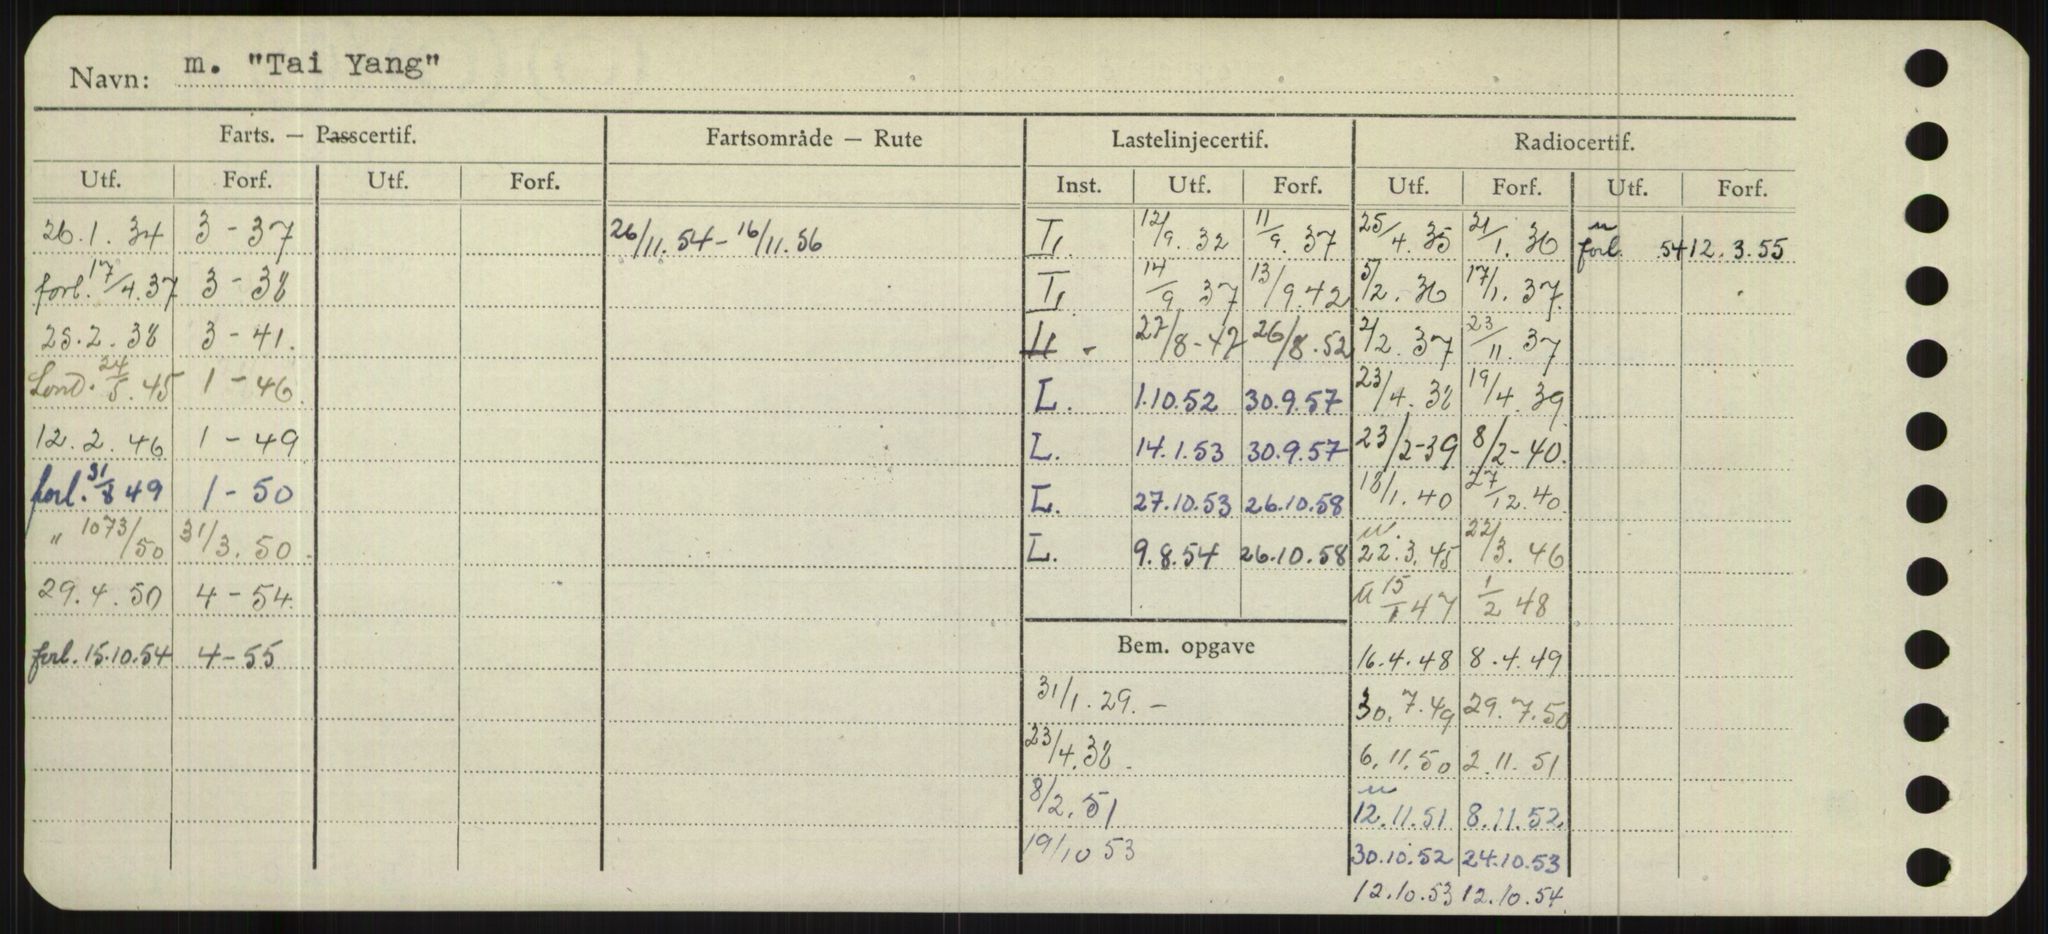 Navn: m. "Tai Yang"
Farts. — Passcertif. Fartsområde — Rute Lastelinjecertif. Radiocertif.
Utf. Forf. Utf. Forf. Inst. Utf. Forf. Utf. Forf. Utf. Forf.
26.1.34 3-37 26/11.54-16/11.56 12/9.32 11/9.37 25/4.35 21/1.36 forl. 54 12.3.55
forl. 17/4.37 3-38 14/9 37 13/9.42 5/2.36 17/1.37
25.2.38 3-41. 27/8-47 26/8.52 2/2.37 23/11.37
Lond. 24/5.45 1-46 L. 1.10.52 30.9.57 23/4.38 19/4.39
12.2.46 1-49 L. 14.1.53 30.9.57 23/2-39 8/2-40.
forl. 31/8 49 1-50 L. 27.10.53 26.10.58 18/1.40 27/12.40
" 1073/50 31/3.50 L. 9.8.54 26.10.58 22.3.45 22/3.46
29.4.50 4-54 15/1 47 1/2 48
forl. 15.10.54 4-55 Bem. opgave 16.4.48 8.4.49
31/1.29.- 30.7.49 29.7.50
23/4.38. 6.11.50 2.11.51
8/2.51 12.11.51 8.11.52
19/10 53 30.10.52 24.10.53
12.10.53 12.10.54